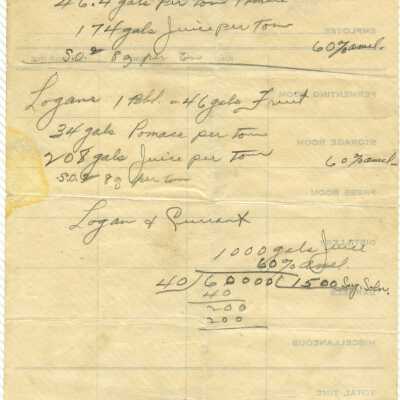 46.4 gals per ton Pomace
174 gals Juice per ton
60% amel.
S.O.2 8 g per ton
Logans 1 Bbl. - 46 gals Fruit
34 gals Pomace per ton
208 gals Juice per ton
60% amel.
S.O.2 8 g per ton
Logan & Currant
1000 gals Juice
60% amel
40)60000(1500 Sug. Soln.
40
200
200
EMPLOYEE
FERMENTING ROOM
STORAGE ROOM
PRESS ROOM
MISCELLANEOUS
TOTAL TIME